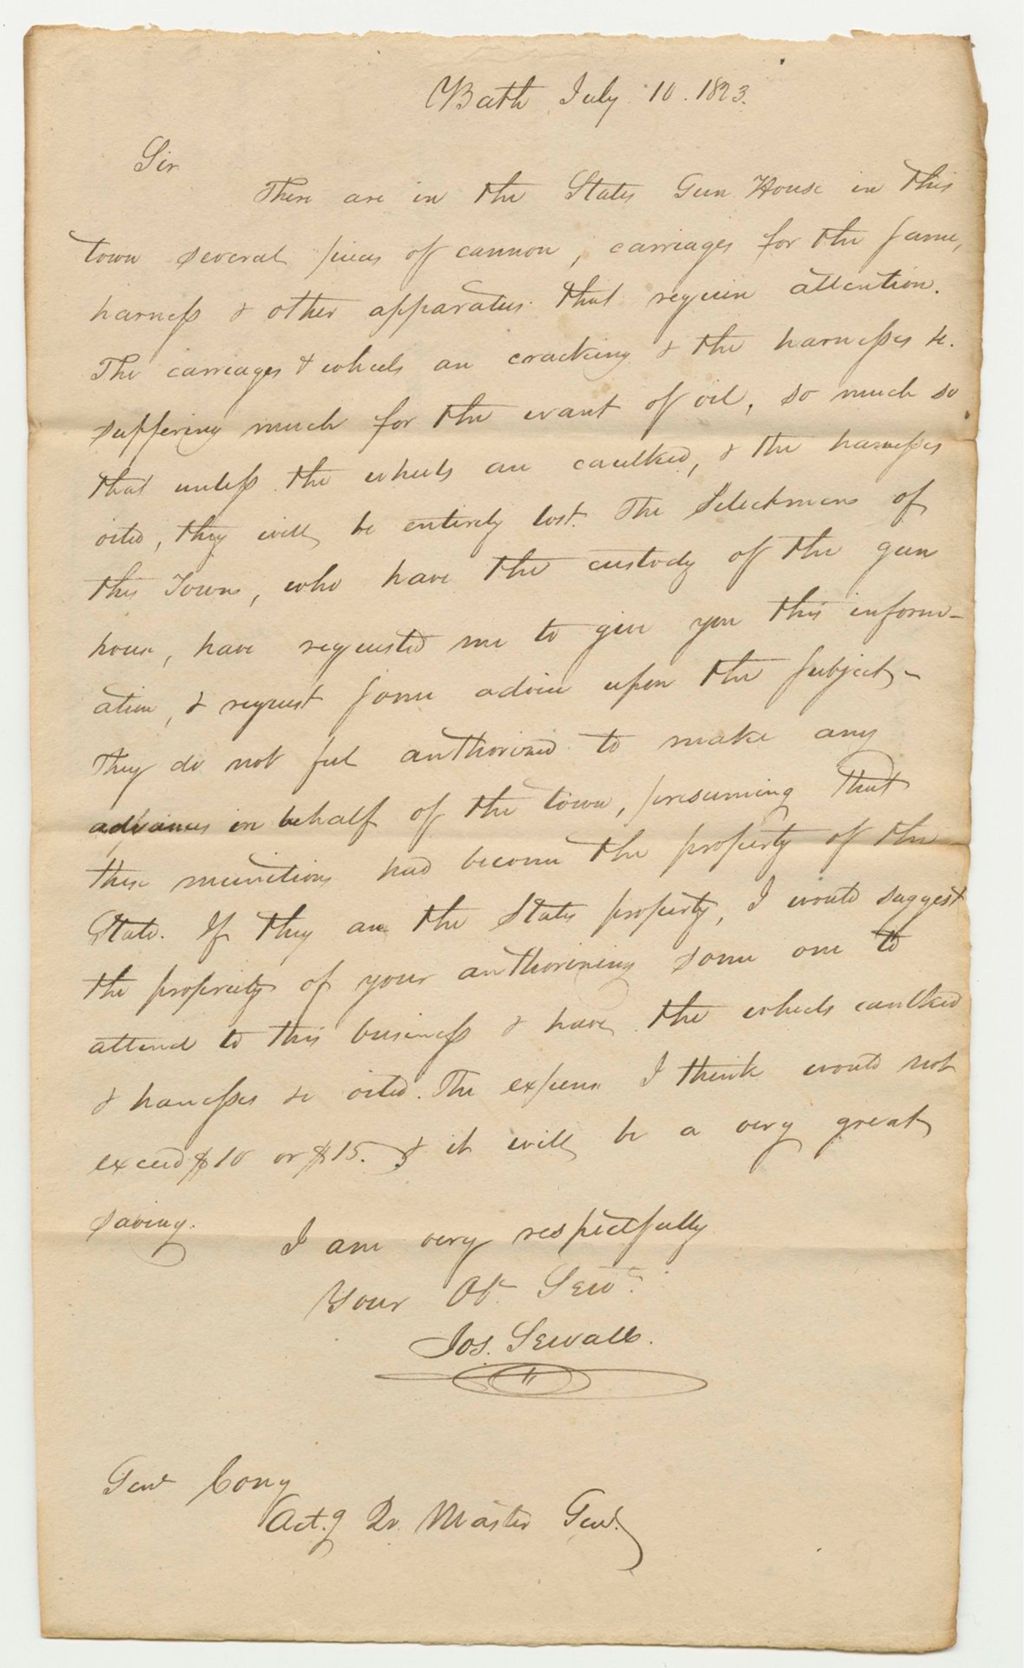 Bath July 10. 1823.
Sir
There are in the States Gun House in this
town several pieces of cannon, carriages for the same,
harness & other apparatus that require attention.
The carriages & wheels are cracking & the harnesses &c.
suffering much for the want of oil, so much so
that unless the wheels are caulked, & the harnesses
oiled, they will be entirely lost. The Selectmens of
this Town, who have the custody of the gun
house, have requested me to give you this inform-
ation, & request some advice upon the subject-
They do not feel authorized to make any
advances in behalf of the town, presuming that
these munitions had become the property of the
State. If they are the States property, I would suggest
the propriety of your authorizing some one to
attend to this business & have the wheels caulked
& harnesses &c oiled. The expense I think would not
exceed $10 or $15. & it will be a very great
saving.
I am very respectfully
Your Ob. Servt.
Jos. Sewall.
Genl Cony
Act.g Qr. Master Genl.